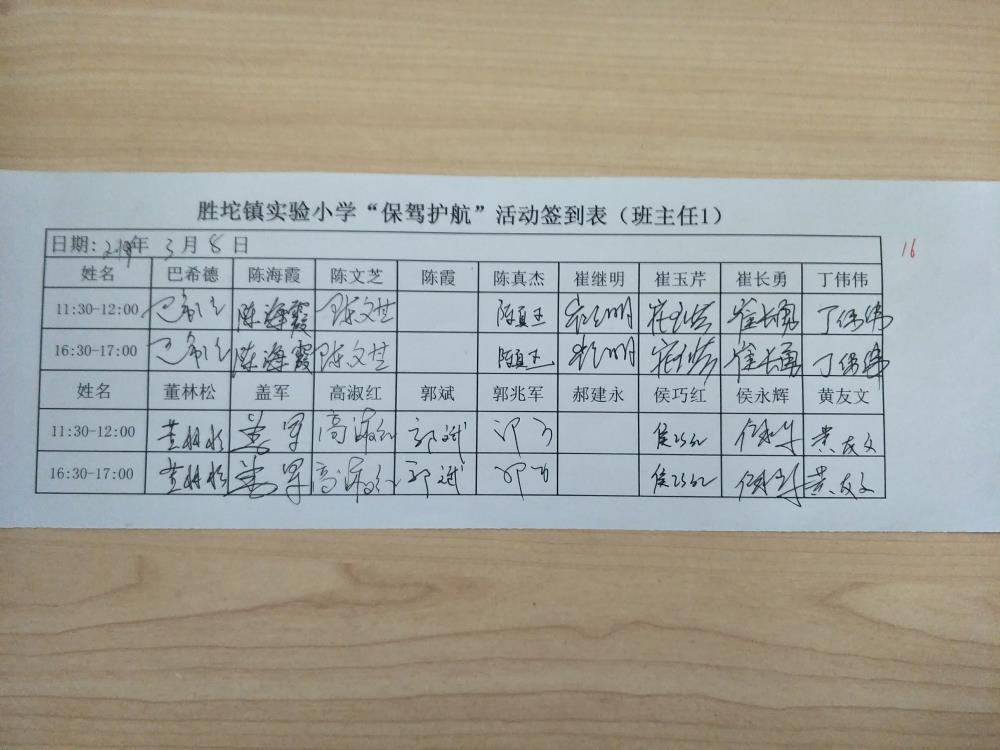 胜坨镇实验小学“保驾护航”活动签到表（班主任1）
日期: 2019年 3月 8日
16
姓名 巴希德 陈海霞 陈文芝 陈霞 陈真杰 崔继明 崔玉芹 崔长勇 丁伟伟
11:30-12:00 巴希德 陈海霞 陈文芝 陈真杰 崔继明 崔玉芹 崔长勇 丁伟伟
16:30-17:00 巴希德 陈海霞 陈文芝 陈真杰 崔继明 崔玉芹 崔长勇 丁伟伟
姓名 董林松 盖军 高淑红 郭斌 郭兆军 郝建永 侯巧红 侯永辉 黄友文
11:30-12:00 董林松 盖军 高淑红 郭斌 侯巧红 侯永辉 黄友文
16:30-17:00 董林松 盖军 高淑红 郭斌 侯巧红 侯永辉 黄友文